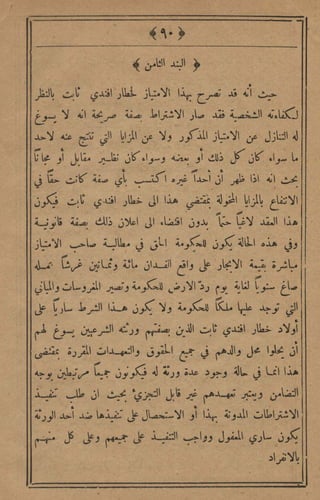 ﴿ ٩٠ ﴾
﴿ البند الثامن ﴾
حيث أنه قد تصرح بهذا الامتياز لخطار افندي ثابت بالنظر
لكفاءته الشخصية فقد صار الاشتراط بصفة صريحة انه لا يسوغ
له التنازل عن الامتياز المذكور ولا عن المزايا التي تنتج عنه لاحد
ما سواء كان كل ذلك أو بعضه وسواء كان نظير مقابل أو مجاناً
بحيث انه اذا ظهر أن أحداً غيره اكتسب بأي صفة كانت حقاً في
الانتفاع بالمزايا المخولة بمقتضى هذا الى خطار افندي ثابت فيكون
هذا العقد لاغياً حتماً بدون اقتضاء الى اعلان ذلك بصفة قانونية
وفي هذه الحالة يكون للحكومة الحق في مطالبة صاحب الامتياز
مباشرة بقيمة الايجار على واقع الفدان مائة وثمانين غرشاً عمله
صاغ سنوياً لغاية يوم ردّ الارض للحكومة وتصير المغروسات والمباني
التي توجد عليها ملكاً للحكومة ولا يكون هذا الشرط سارياً على
أولاد خطار افندي ثابت الذين بصفتهم ورثته الشرعيين يسوغ لهم
أن يحلوا محل والدهم في جميع الحقوق والتعهدات المقررة بمقتضى
هذا انما في حالة وجود عدة ورثة له فيكونون جميعاً مرتبطين بوجه
التضامن ويعتبر تعهدهم غير قابل التجزئ بحيث ان طلب تنفيذ
الاشتراطات المدونة بهذا أو الاستحصال على تنفيذها ضد أحد الورثة
يكون ساري المفعول وواجب التنفيذ على جميعهم وعلى كل منهم
بالانفراد